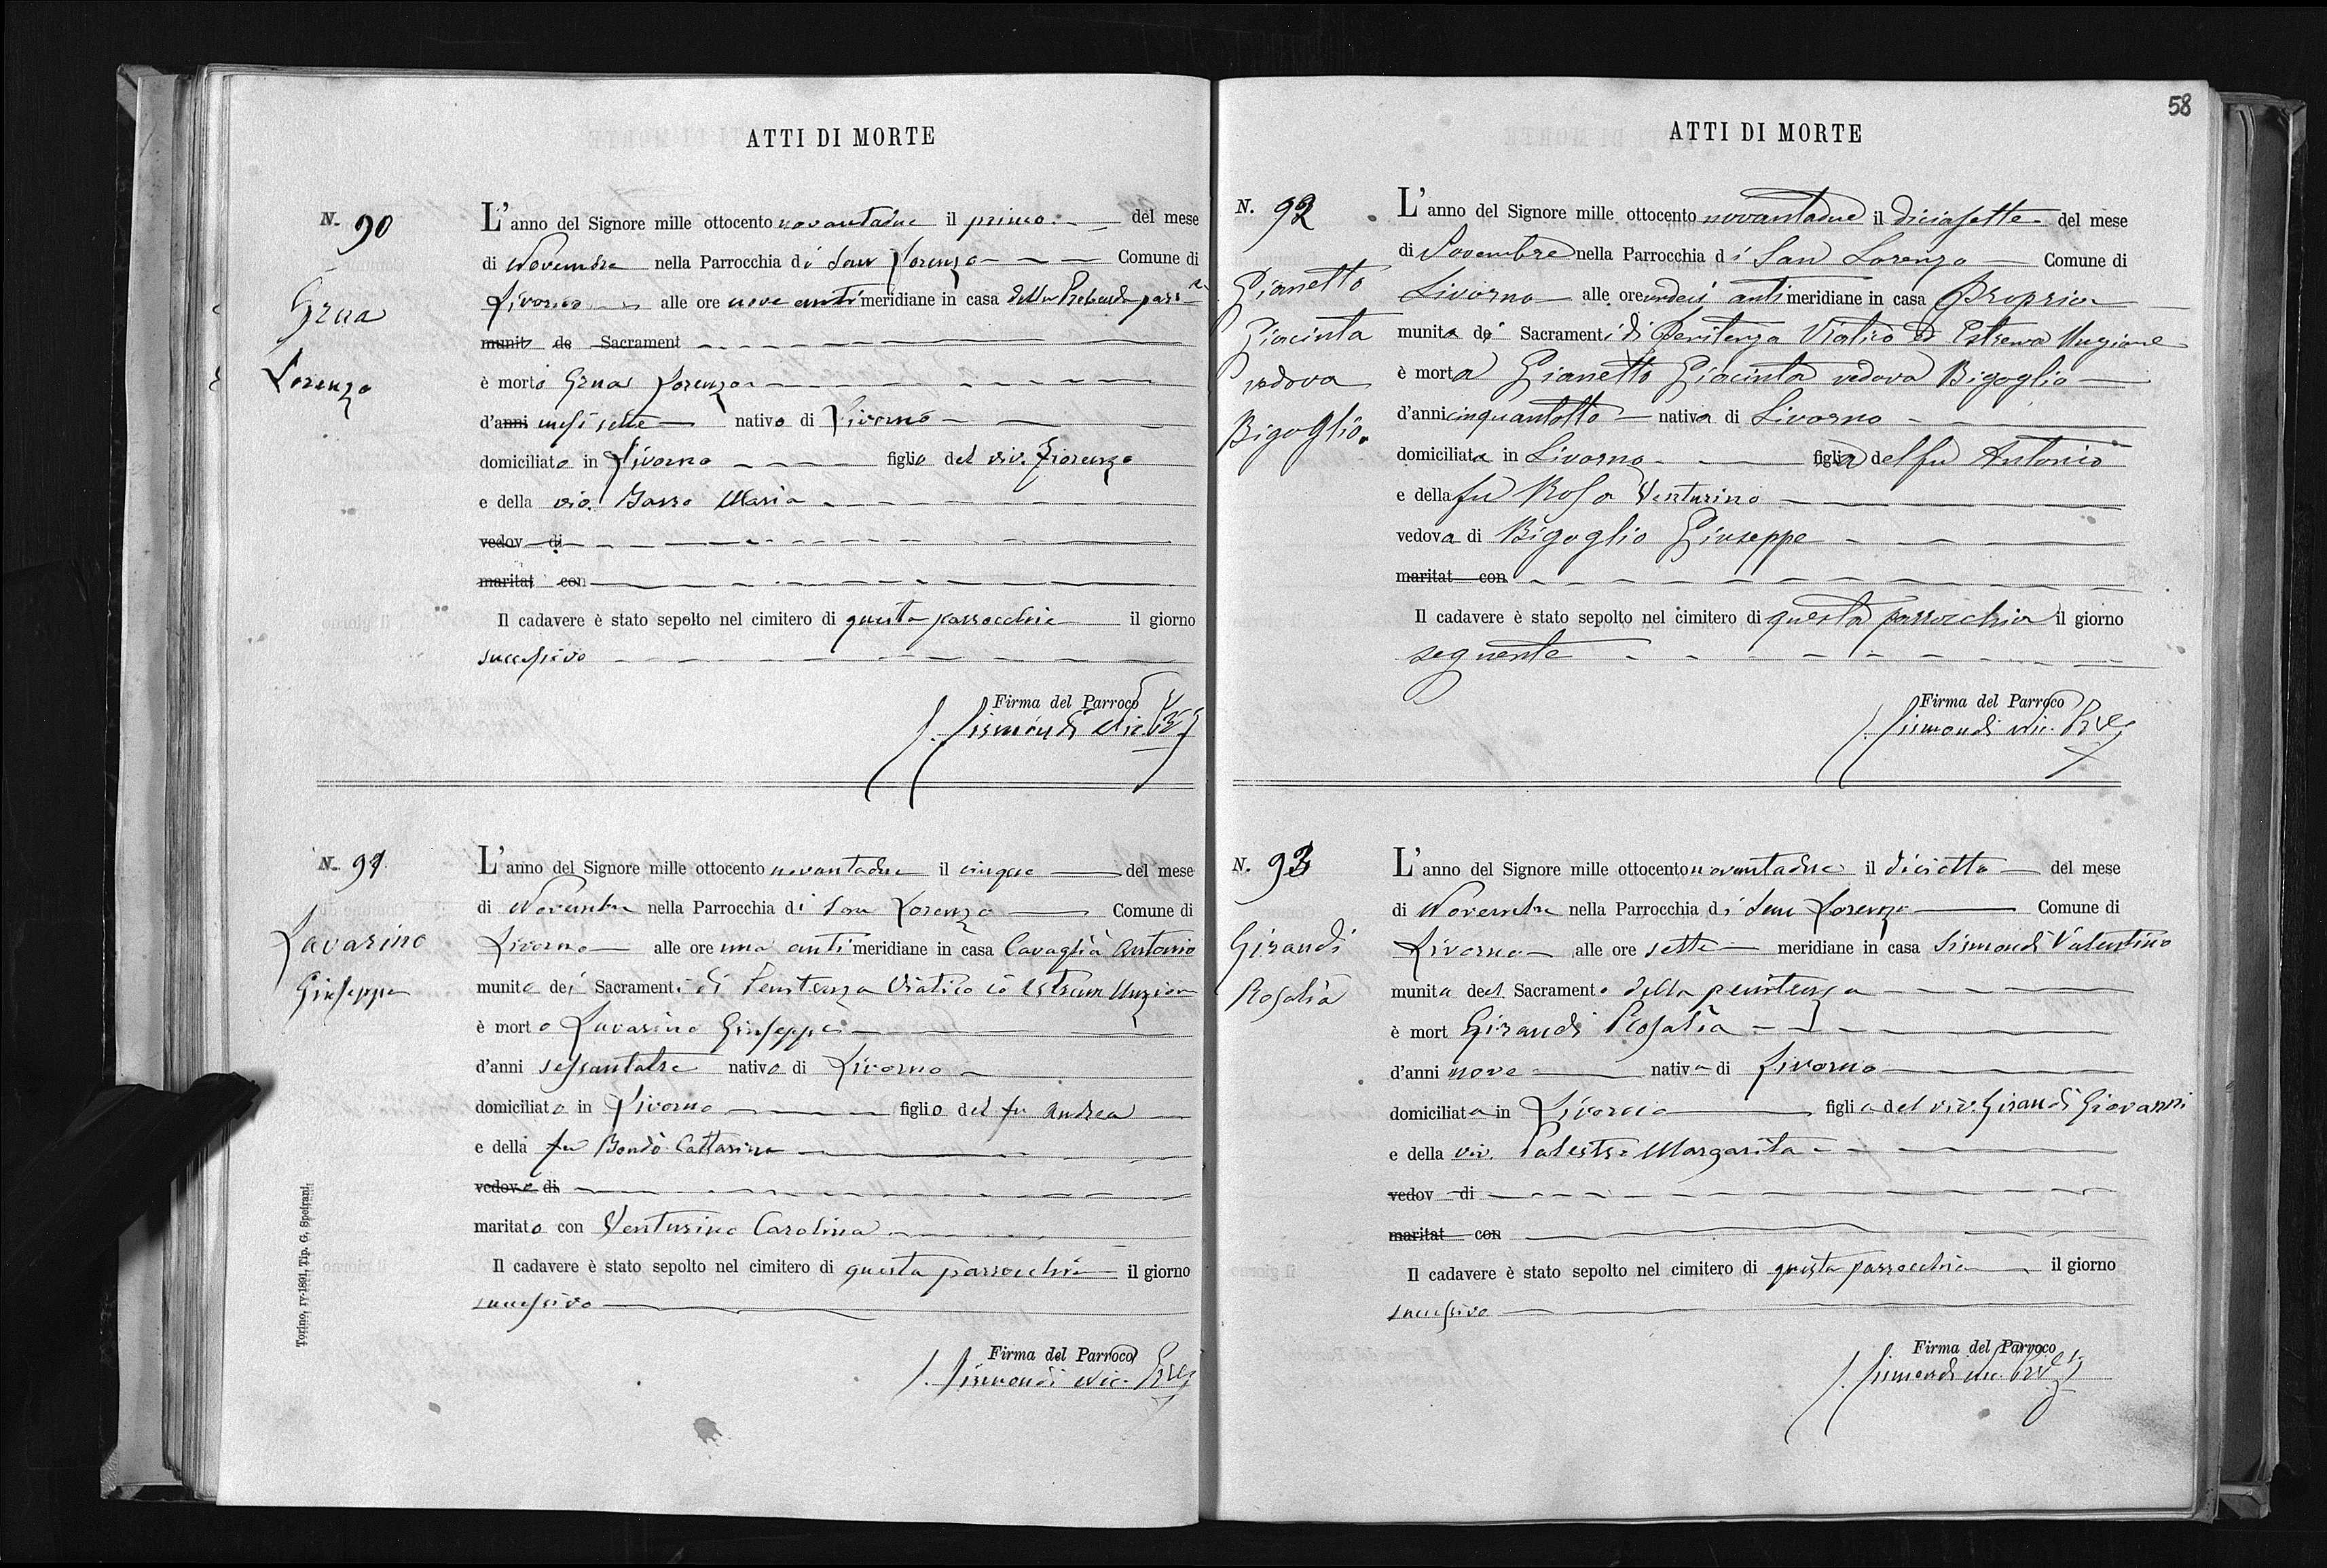 ATTI DI MORTE
N. 90
Grua
Lorenzo
L'anno del Signore mille ottocento novantadue il primo del mese
di Novembre nella Parrocchia di San Lorenzo Comune di
Livorno alle ore nove antimeridiane in casa della Prebenda parr
munit de Sacrament
è morto Grua Lorenzo
d'anni mesi sette nativo di Livorno
domiciliato in Livorno figlio del viv. Fiorenzo
e della viv. Maria
vedov di
maritat con
Il cadavere è stato sepolto nel cimitero di questa parrocchia il giorno
successivo
Firma del Parroco
Sismondi Vic.
N. 91
Lavarino
Giuseppe
L'anno del Signore mille ottocento novantadue il cinque del mese
di Novembre nella Parrocchia di San Lorenzo Comune di
Livorno alle ore una antimeridiane in casa Cavaglià Antonio
munito dei Sacramenti di Penitenza Viatico ed Estrem Unzion
è morto Lavarino Giuseppe
d'anni sessantatre nativo di Livorno
domiciliato in Livorno figlio del fu Andrea
e della fu Bondò Cattarina
vedovo di
maritato con Venturino Carolina
Il cadavere è stato sepolto nel cimitero di questa parrocchia il giorno
successivo
Firma del Parroco
Sismondi Vic.
Torino, IV-1891, Tip. G. Speirani.
58
ATTI DI MORTE
N. 92
Gianetto
Giacinta
vedova
Bigoglio.
L'anno del Signore mille ottocento novantadue il diciasette del mese
di Novembre nella Parrocchia di San Lorenzo Comune di
Livorno alle ore undeci antimeridiane in casa Propria
munita dei Sacramenti di Penitenza Viatico ed Estrema Unzione
è morta Gianetto Giacinta vedova Bigoglio
d'anni cinquantotto nativa di Livorno
domiciliata in Livorno figlia del fu Antonio
e della fu Rosa Venturino
vedova di Bigoglio Giuseppe
maritat con
Il cadavere è stato sepolto nel cimitero di questa parrocchia il giorno
seguente
Firma del Parroco
Sismondi Vic.
N. 93
Girandi
Rosalia
L'anno del Signore mille ottocento novantadue il diciotto del mese
di Novembre nella Parrocchia di San Lorenzo Comune di
Livorno alle ore sette meridiane in casa Sismondi Valentino
munita del Sacramento della penitenza
è mort Girandi Rosalia
d'anni nove nativa di Livorno
domiciliata in Livorno figlia del viv. Girandi Giovanni
e della viv. Palestro Margarita
vedov di
maritat con
Il cadavere è stato sepolto nel cimitero di questa parrocchia il giorno
successivo
Firma del Parroco
Sismondi Vic.